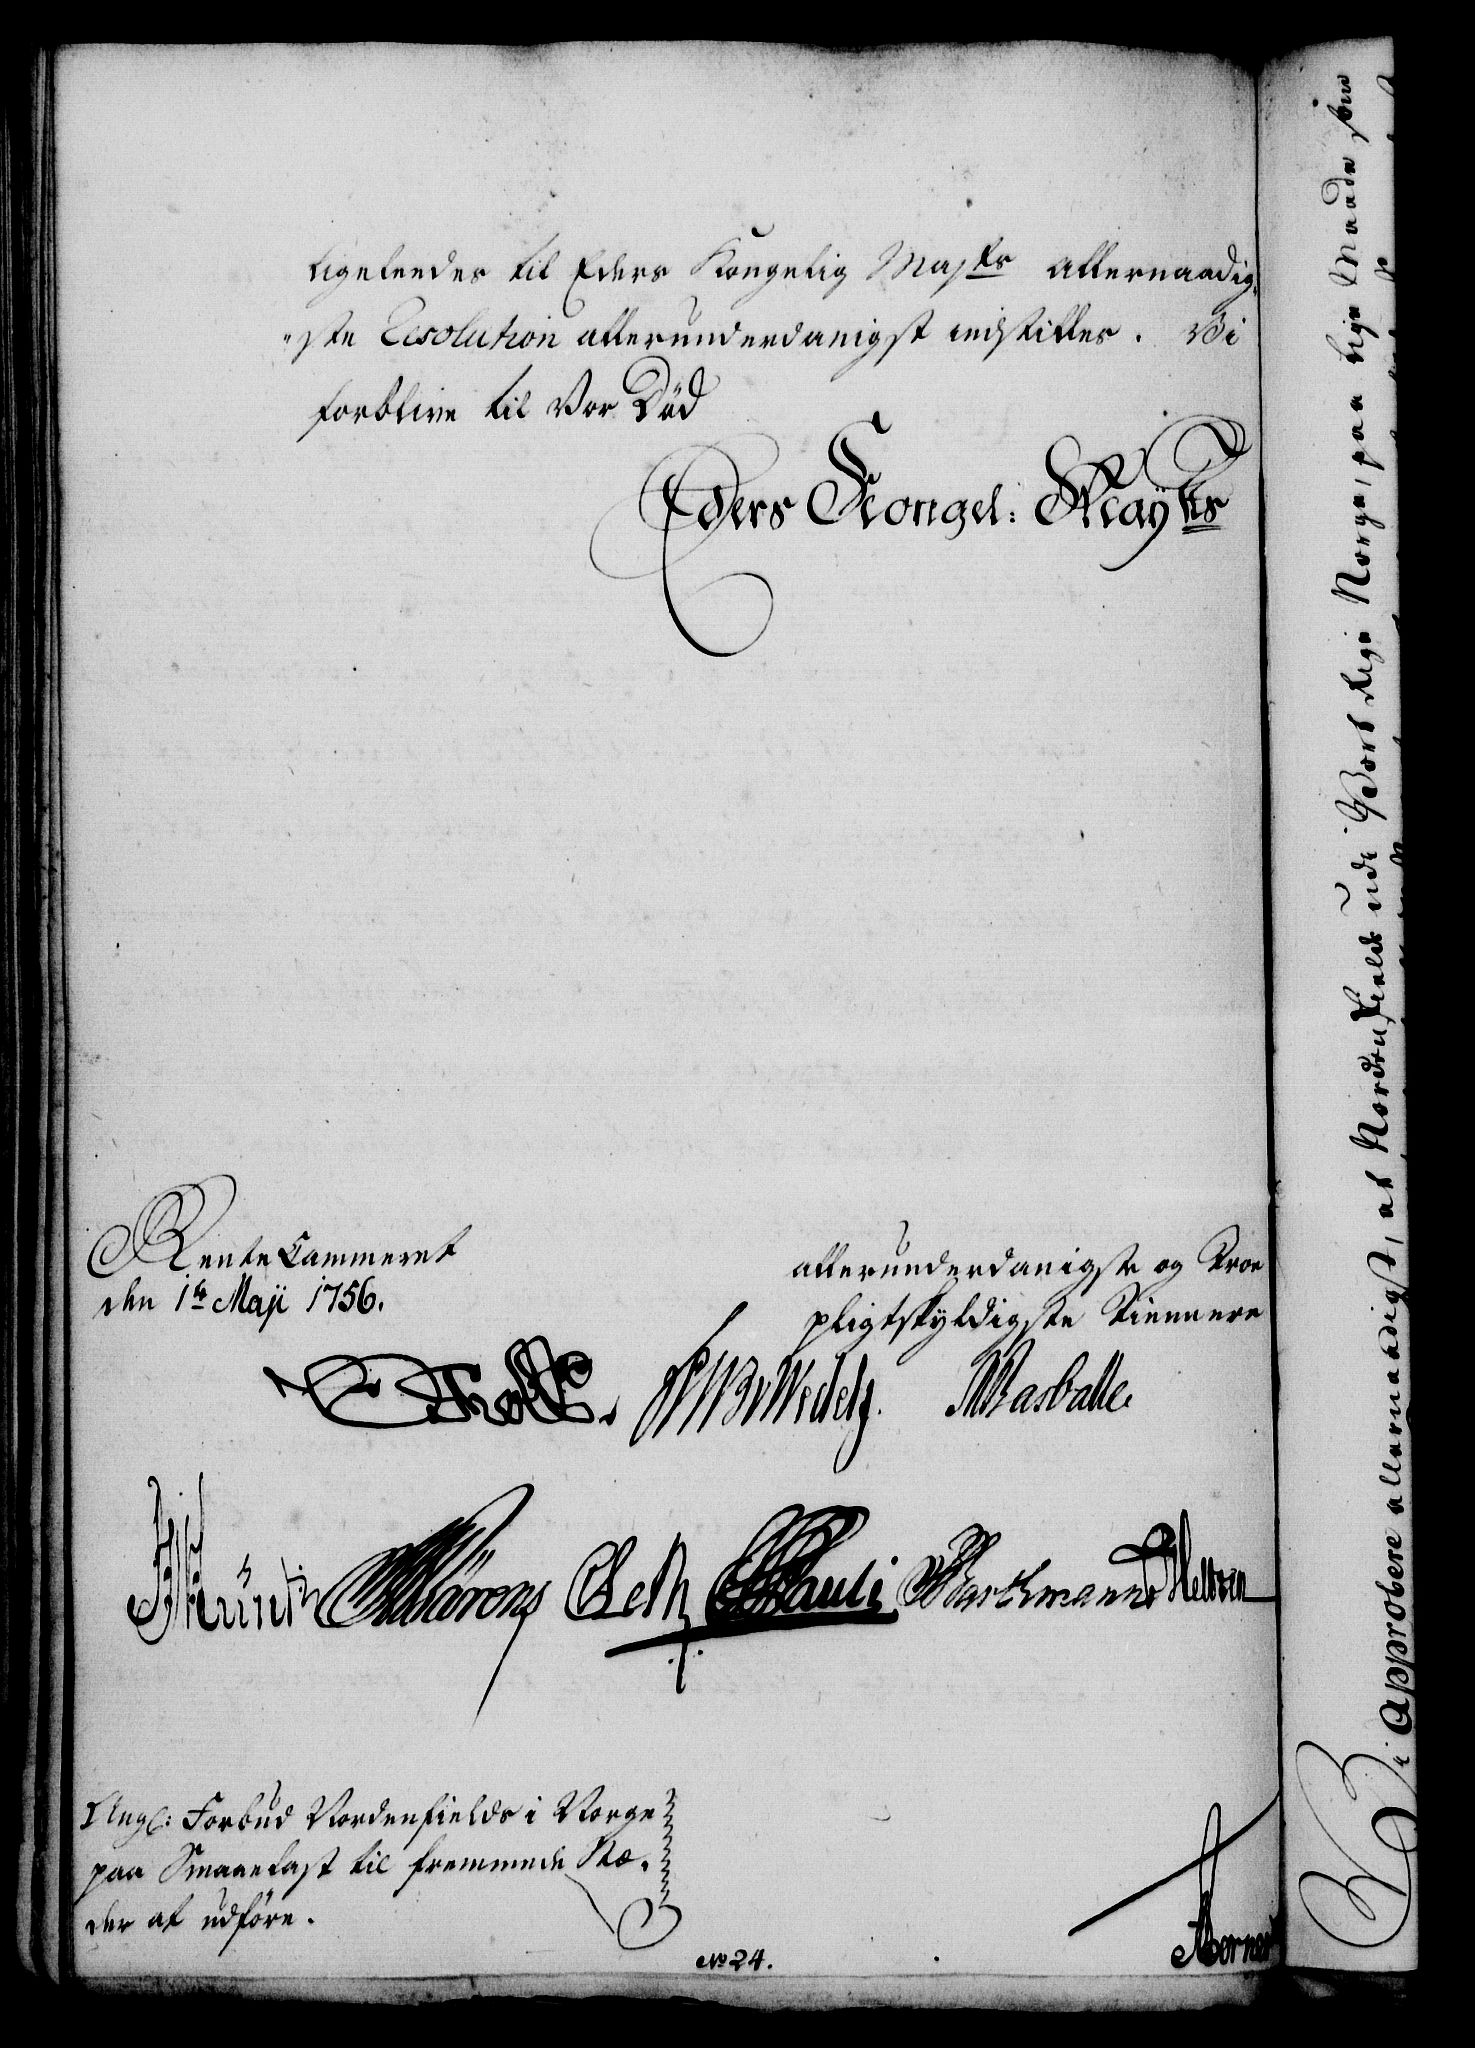 ligeledes til Eders Kongelig Maj:ts allernaadig,
"ste Resolution allerunderdanigst indstilles. Vi
forblive til Vor Død
Eders Kongel: Mayts
Rente Cammeret
den 1te Maji 1756.
allerunderdanigste og Troe
pligtskyldigste Tienere
Holst. Wedell. Rasballe.
Müntz Kärens Leth Pauli Barthmann Hellvin
Ang: Forbud Nordenfields i Norge
paa Smaaelast til fremmede Stæ,
der at udføre.
No 24.
Vi Approbere allernaadigst, at Nordenfields udi Vort Rige Norge, paa lige Maade som